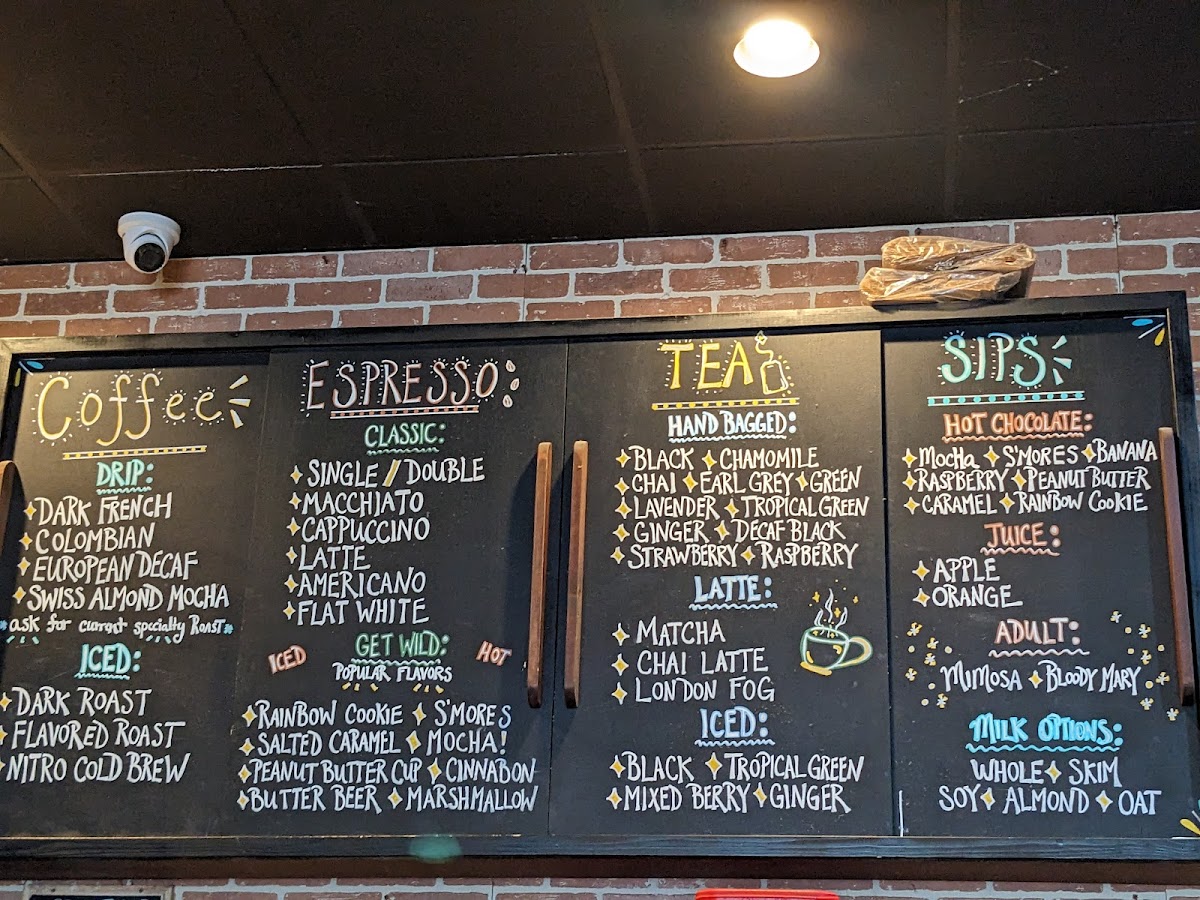 Coffee
DRIP:
DARK FRENCH
COLOMBIAN
EUROPEAN DECAF
SWISS ALMOND MOCHA
*ask for current specialty Roast*
ICED:
DARK ROAST
FLAVORED ROAST
NITRO COLD BREW
ESPRESSO:
CLASSIC:
SINGLE / DOUBLE
MACCHIATO
CAPPUCCINO
LATTE
AMERICANO
FLAT WHITE
ICED GET WILD: HOT
POPULAR FLAVORS
RAINBOW COOKIE S'MORES
SALTED CARAMEL MOCHA!
PEANUT BUTTER CUP CINNABON
BUTTER BEER MARSHMALLOW
TEA
HAND BAGGED:
BLACK CHAMOMILE
CHAI EARL GREY GREEN
LAVENDER TROPICAL GREEN
GINGER DECAF BLACK
STRAWBERRY RASPBERRY
LATTE:
MATCHA
CHAI LATTE
LONDON FOG
ICED:
BLACK TROPICAL GREEN
MIXED BERRY GINGER
SIPS
HOT CHOCOLATE:
MOCHA S'MORES BANANA
RASPBERRY PEANUT BUTTER
CARAMEL RAINBOW COOKIE
JUICE:
APPLE
ORANGE
ADULT:
MIMOSA BLOODY MARY
MILK OPTIONS:
WHOLE SKIM
SOY ALMOND OAT